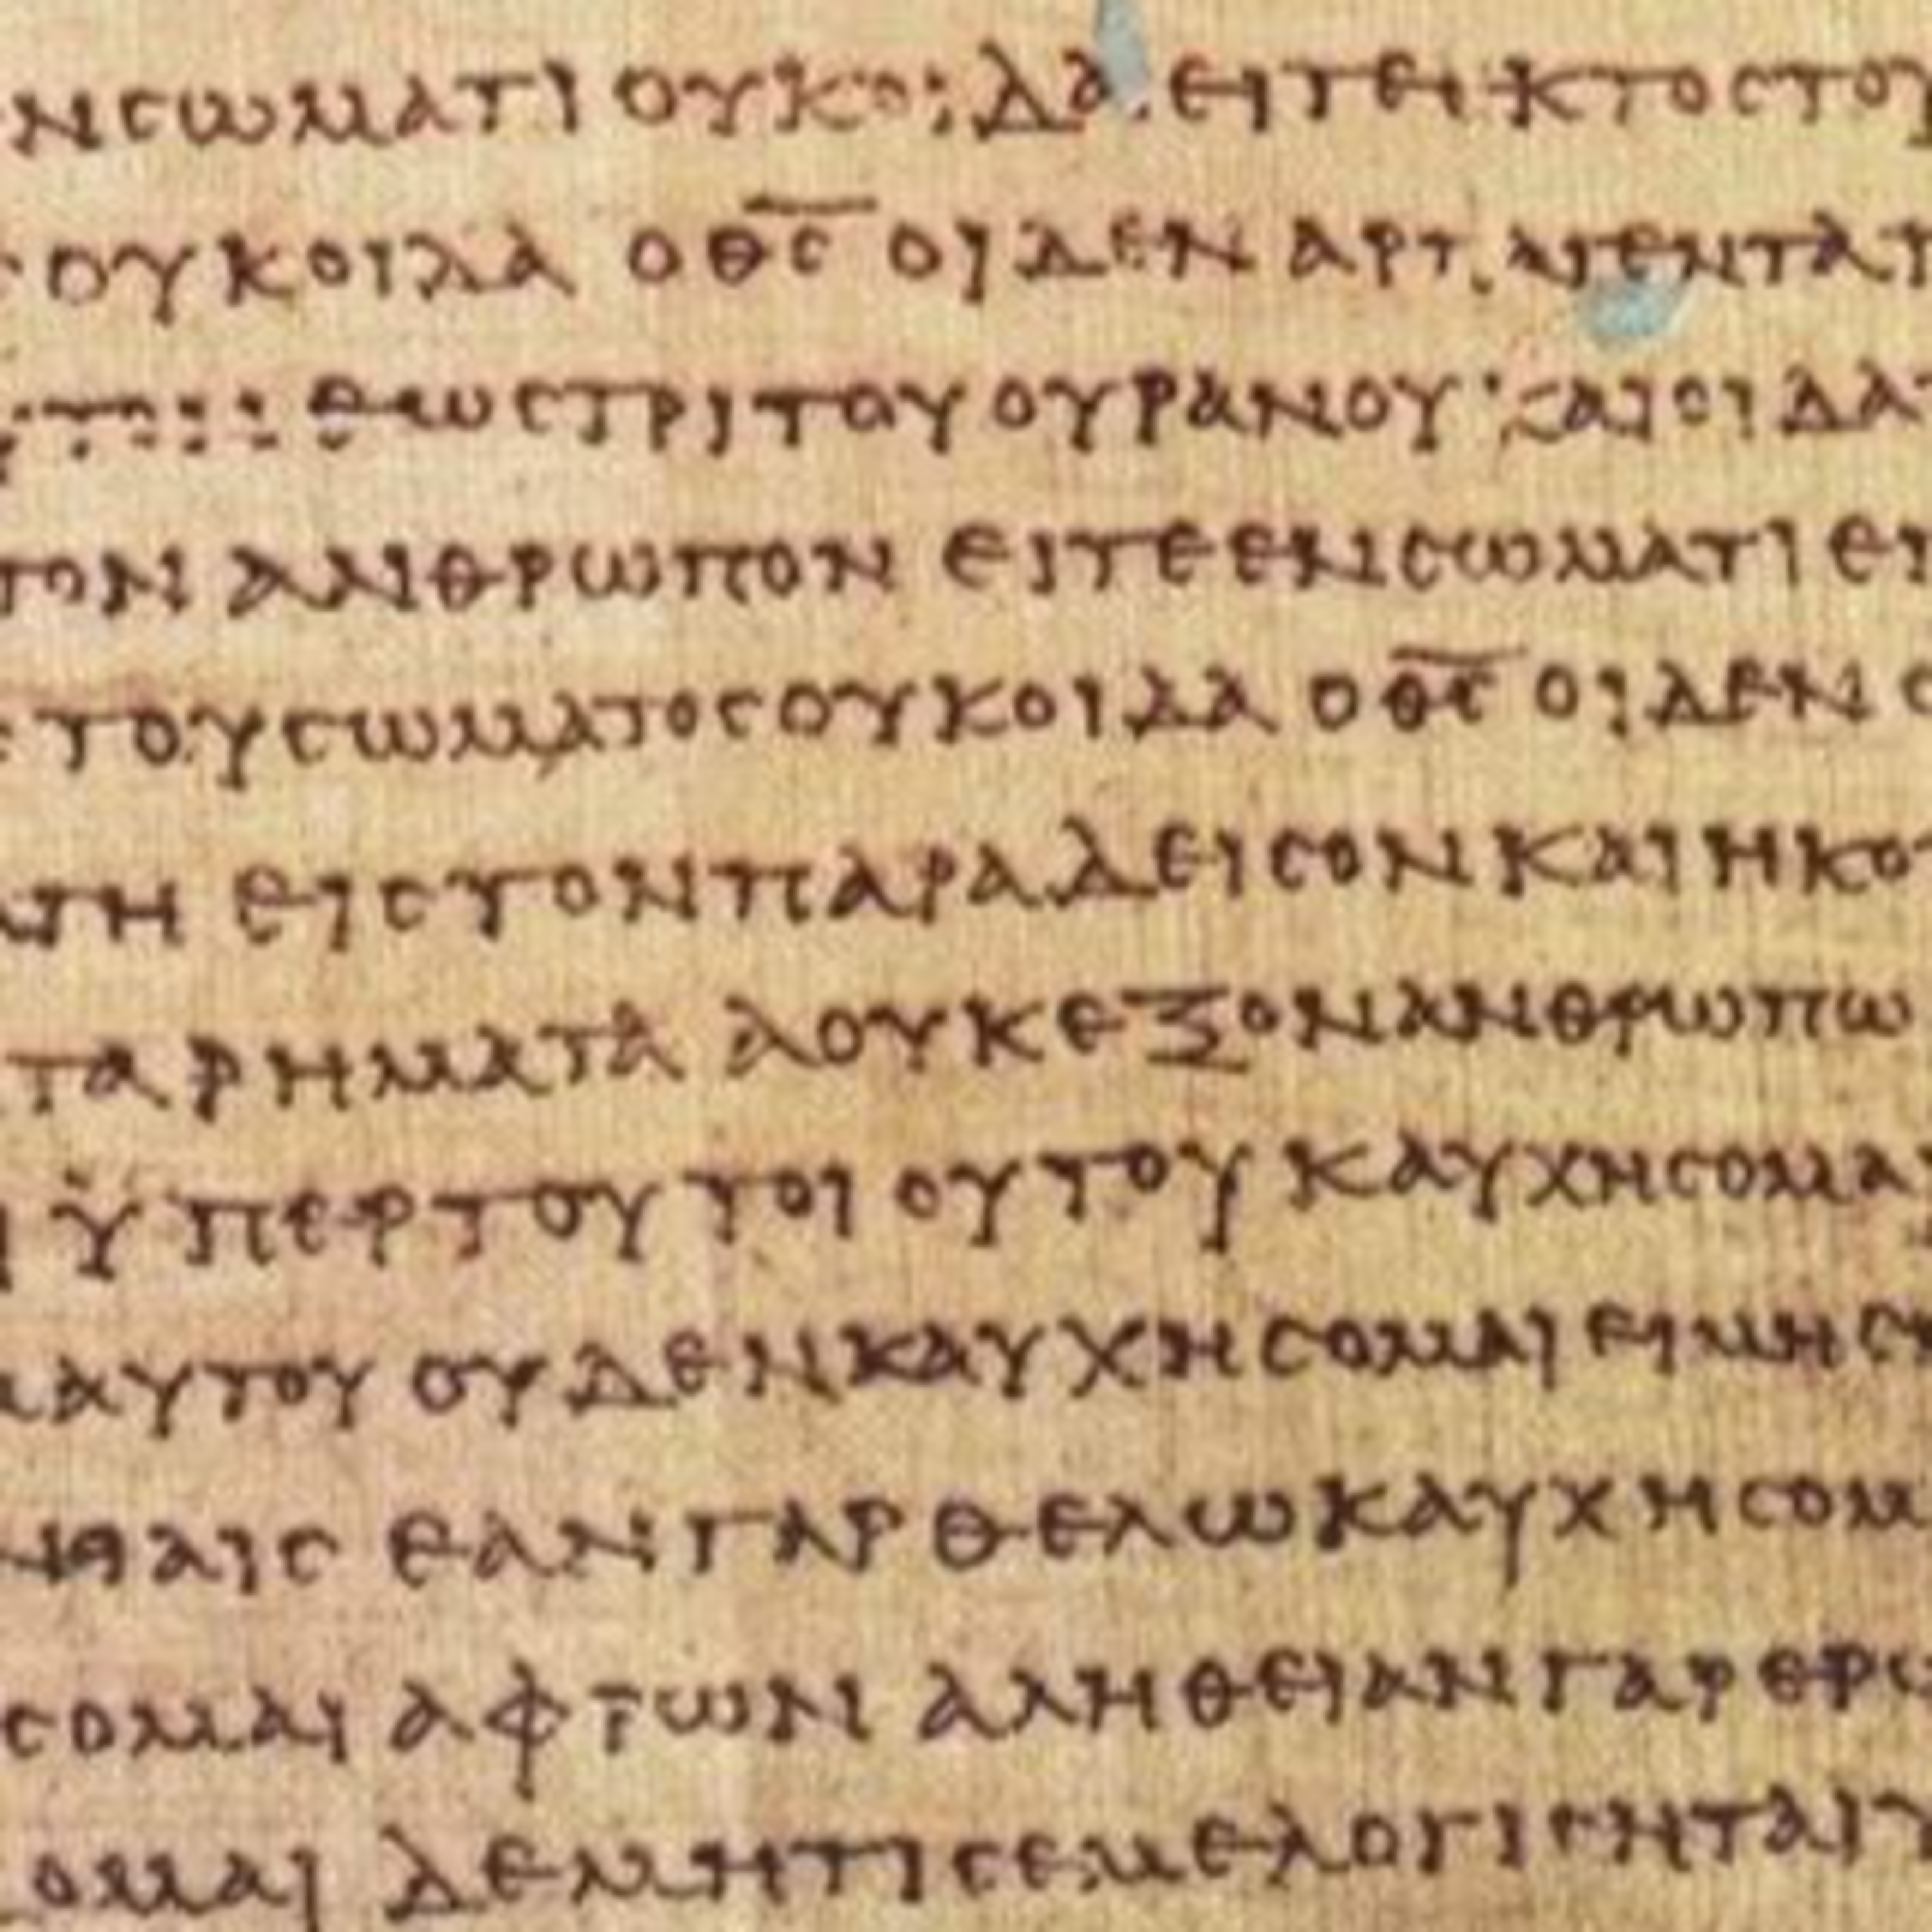 ΝϹΩΜΑΤΙ ΟΥΚΟΙΔΑ ΕΙΤΕ ΕΚΤΟϹ ΤΟΥ
ΟΥΚ ΟΙΔΑ Ο Θ̅Ϲ̅ ΟΙΔΕΝ ΑΡΠΑΓΕΝΤΑ
ΕΩϹ ΤΡΙΤΟΥ ΟΥΡΑΝΟΥ ΚΑΙ ΟΙΔΑ
ΤΟΝ ΑΝΘΡΩΠΟΝ ΕΙΤΕ ΕΝ ϹΩΜΑΤΙ ΕΙ
ΤΟΥ ϹΩΜΑΤΟϹ ΟΥΚ ΟΙΔΑ Ο Θ̅Ϲ̅ ΟΙΔΕΝ Ο
ΓΗ ΕΙϹ ΤΟΝ ΠΑΡΑΔΕΙϹΟΝ ΚΑΙ ΗΚΟΥ
ΤΑ ΡΗΜΑΤΑ Α ΟΥΚ ΕΞΟΝ ΑΝΘΡΩΠΩ
Ϋ́ΠΕΡ ΤΟΥ ΤΟΙΟΥΤΟΥ ΚΑΥΧΗϹΟΜΑΙ
ΜΑΥΤΟΥ ΟΥΔΕΝ ΚΑΥΧΗϹΟΜΑΙ ΕΙ ΜΗ
ΝΙΑΙϹ ΕΑΝ ΓΑΡ ΘΕΛΩ ΚΑΥΧΗϹΟΜ
ϹΟΜΑΙ ΑΦΤΩΝ ΑΛΗΘΕΙΑΝ ΓΑΡ ΕΡΩ
ΟΜΑΙ ΔΕ ΜΗ ΤΙϹ ΕΜΕ ΛΟΓΙϹΗΤΑΙ